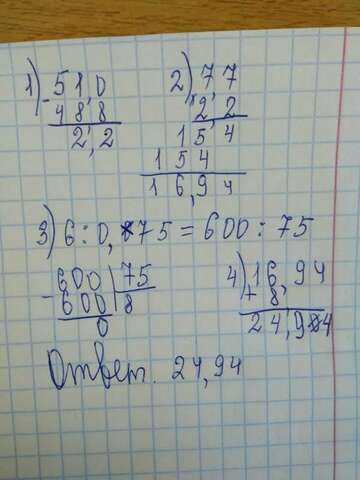 1) 51,0
- 48,8
2,2
2) 7,7
× 2,2
1 5 4
1 5 4
1 6,9 4
3) 6 : 0,75 = 600 : 75
600 | 75
- 600 | 8
0
4) 16,94
+ 8,
24,94
Ответ. 24,94